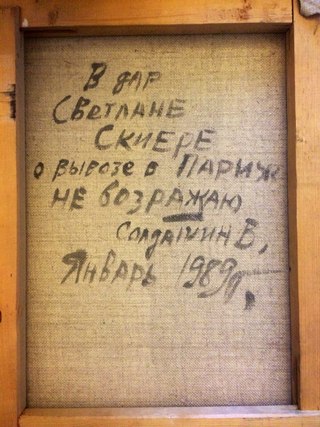 В дар
Светлане
Скиере
о вывозе в Париж
не возражаю
В,
Январь 1989г,